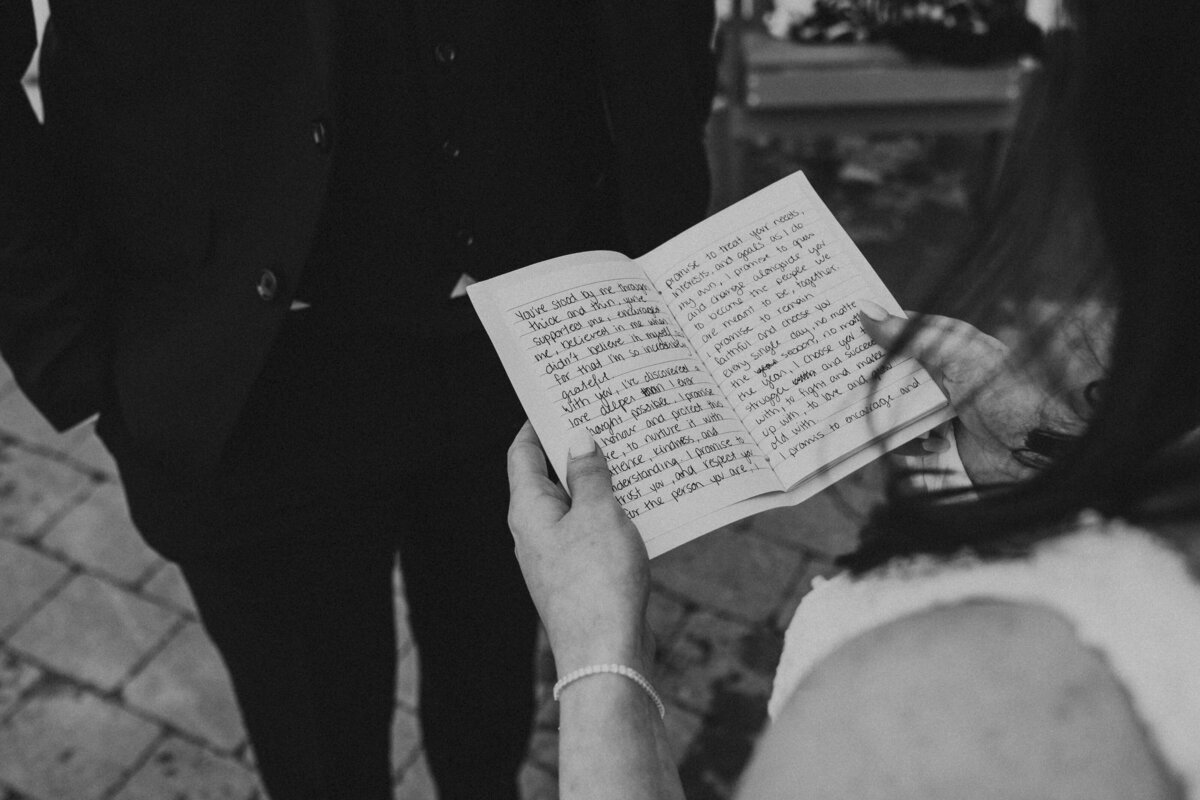 You're stood by me through
thick and thin, you've
supported me, encouraged
me, believed in me when I
didn't believe in myself
for that I'm so incredibly
grateful
With you, I've discovered a
love deeper than I ever
thought possible. I promise
honour and protect this
to nurture it with
patience, kindness, and
understanding. I promise to
trust you, and respect you
for the person you are,
promise to treat your needs,
interests, and goals as I do
my own, I promise to grow
and change alongside you
to become the people we
are meant to be, together.
promise to remain
faithful and choose you
every single day, no matter
the season, no matter
the year, I choose you
struggle and success
with, to fight and make
up with, to love and grow
old with.
I promis to encourage and